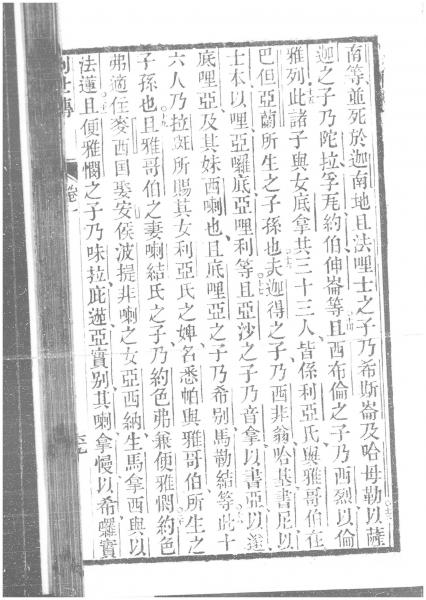 南等並死於迦南地且法哩士之子乃希斯崙及哈母勒以薩
迦之子乃陀拉孚瓦約伯伸崙等且西布倫之子乃西烈以倫
雅列此諸子與女底拿共三十三人皆係利亞氏與雅哥伯在
巴但亞蘭所生之子孫也夫迦得之子乃西非翁哈基書尼以
士本以哩亞囉底亞哩利等且亞沙之子乃音拿以書亞以
底哩亞及其妹西喇也且底哩亞之子乃希別馬勒結等此十
六人乃拉班所賜其女利亞氏之婢名悉帕與雅哥伯所生之
子孫也且雅哥伯之妻喇結氏之子乃約色弗兼便雅憫約色
弗適在麥西国娶安侯波提非喇之女亞西納生馬拿西與以
法蓮且便雅憫之子乃味拉此遜亞實別其喇拿慢以希囉實
創世傳
卷一